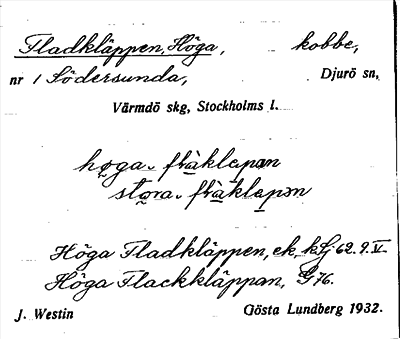 Fladkläppen, Höga, kobbe,
nr 1 Södersunda, Djurö sn,
Värmdö skg, Stockholms l.
høga. frȧklepan
stora. frȧklepan
Höga Fladkläppen, ek. k. Sj 62. 9. V.
Höga Flackkläppan, G 76.
J. Westin Gösta Lundberg 1932.